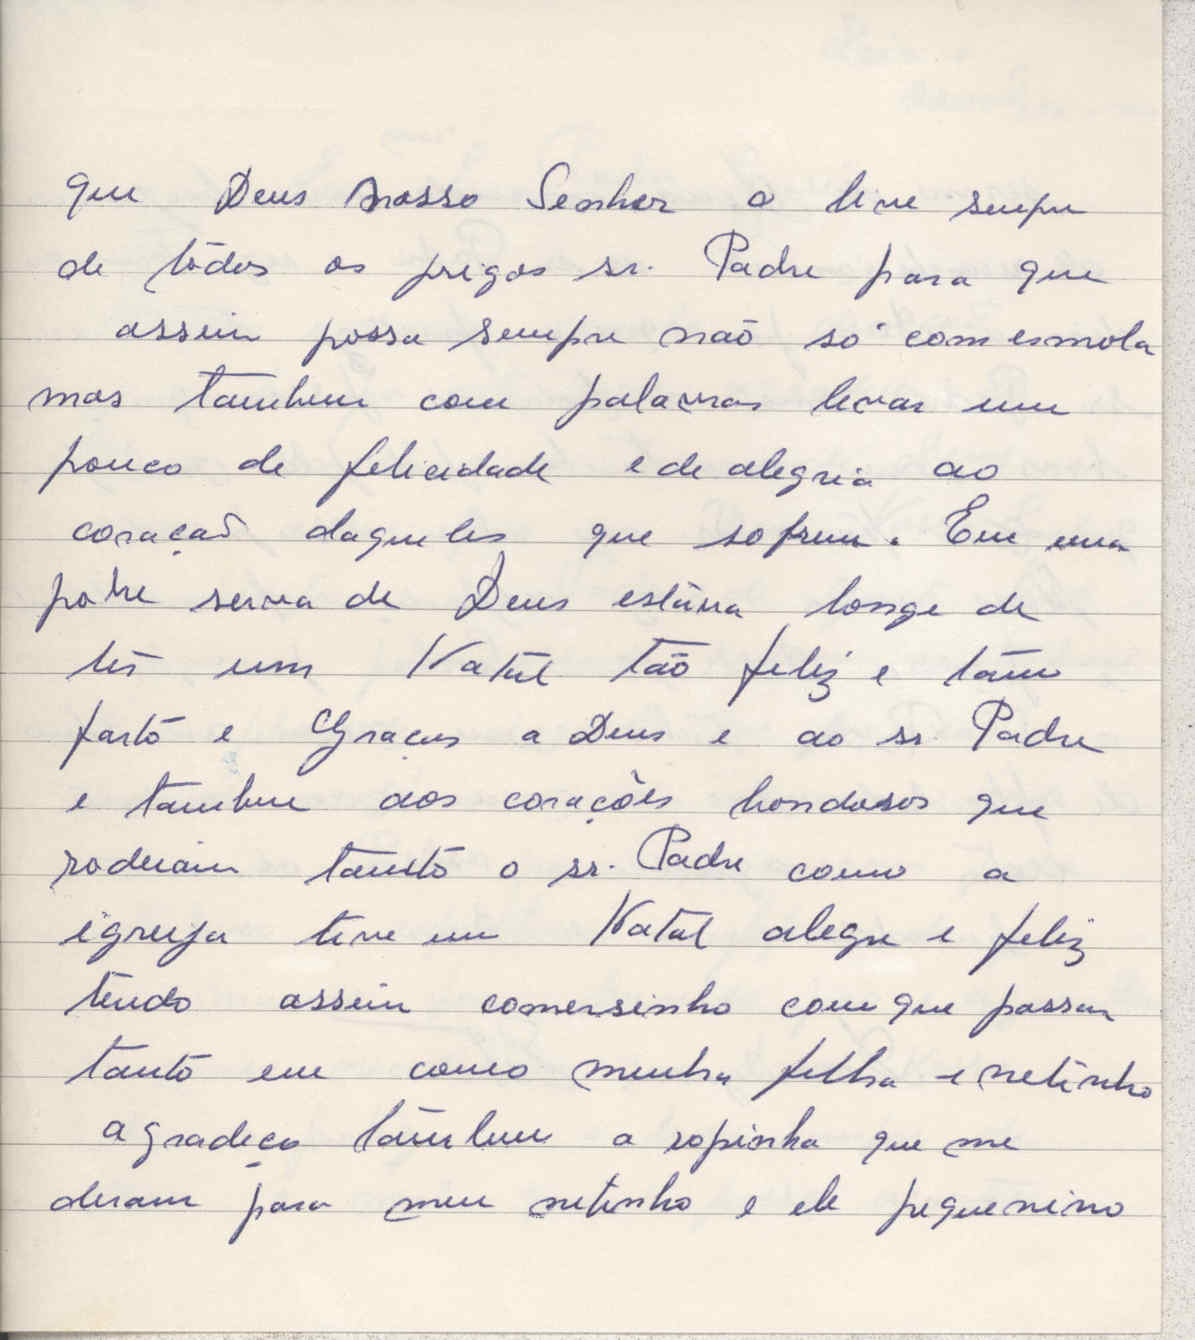 que Deus Nosso Senhor o livre sempre
de tôdos os prigos sr. Padre para que
assim possa sempre não só com esmola
mas tambem com palavras levar um
pouco de felicidade e de alegria ao
coração daqueles que sofrem. Eu uma
pobre serva de Deus estava longe de
ter um Natal tão feliz e tam
farto e Graças a Deus e ao sr. Padre
e tambem aos corações bondosos que
rodeiam tanto o sr. Padre como a
igreja tive um Natal alegre e feliz
tendo assim comersinho com que passar
tanto eu como minha filha e netinho
agradeço tambem a ropinha que me
deram para meu netinho e ele pequenino